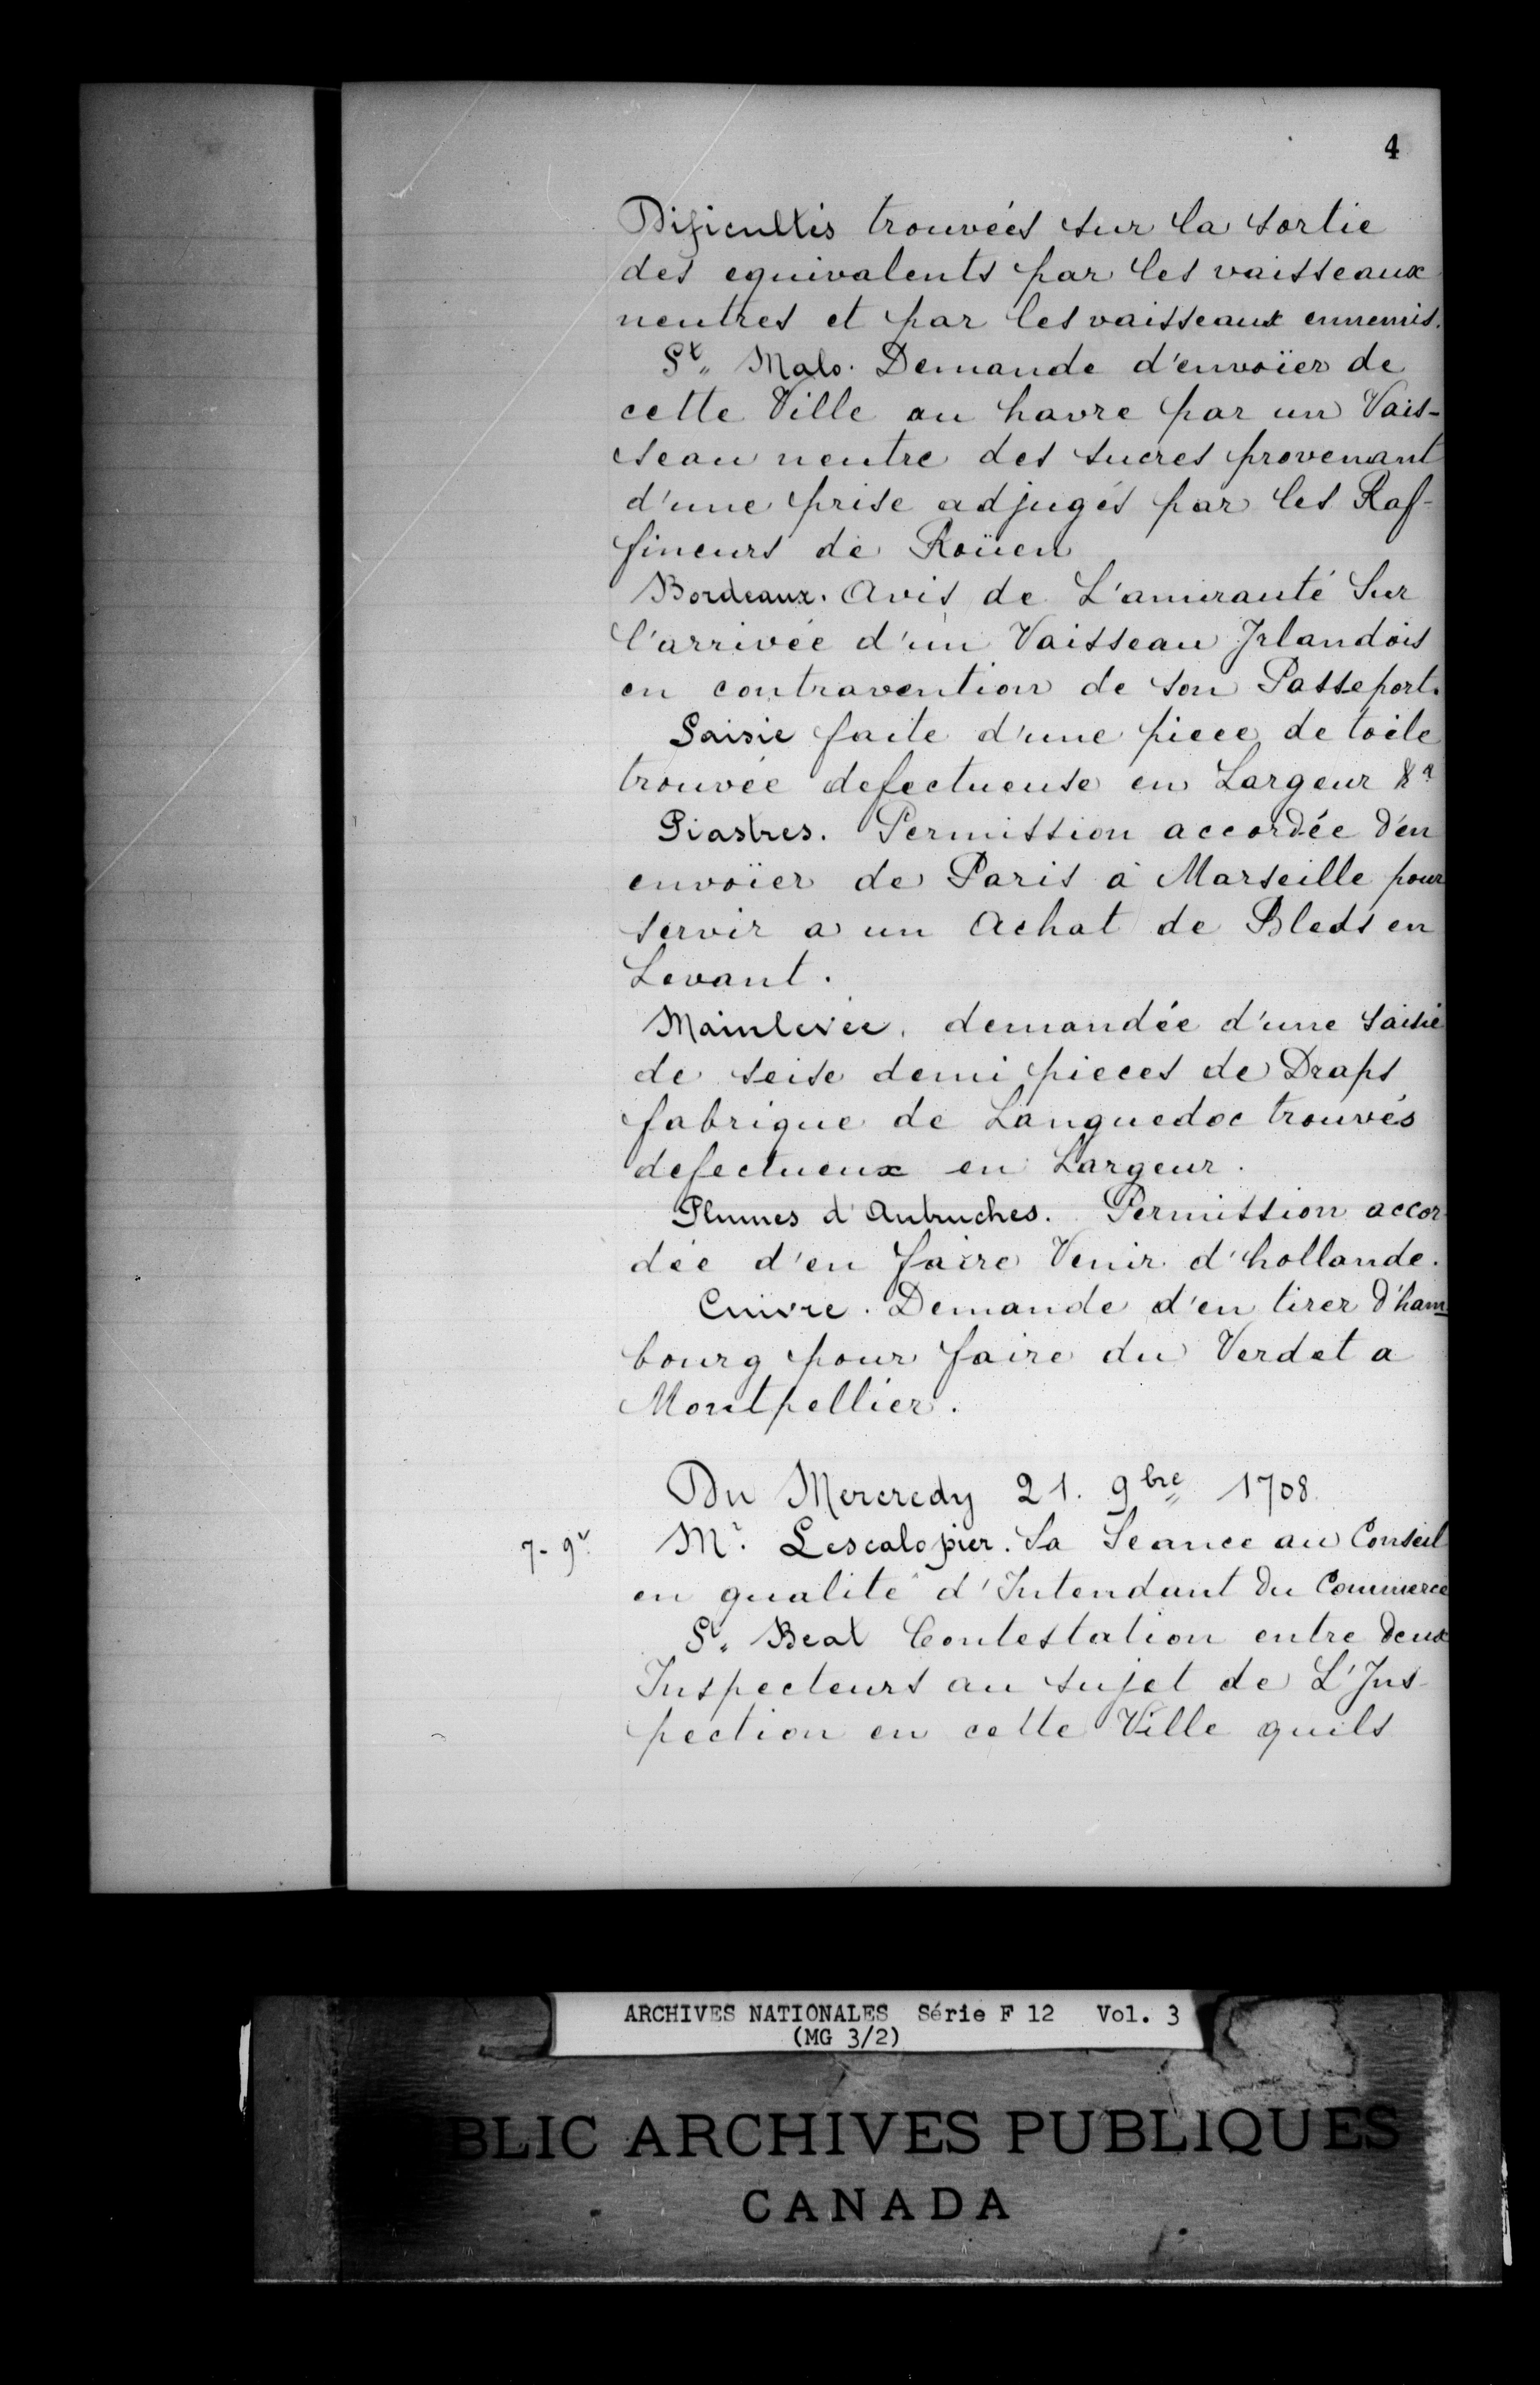 4
Dificultés trouvées sur la sortie
des equivalents par les vaisseaux
neutres et par les vaisseaux ennemis.
St. Malo. Demande d'envoïer de
cette Ville au havre par un Vais-
seau neutre des sucres provenant
d'une prise adjugés par les Raf-
fineurs de Roüen
Bordeaux. Avis de L'amirauté Sur
l'arrivée d'un Vaisseau Irlandois
en contravention de son Passeport.
Saisie faite d'une piece de toile
trouvée defectueuse en Largeur &a
Piastres. Permission accordée d'en
envoïer de Paris à Marseille pour
servir a un Achat de Bleds en
Levant.
Mainlevée. demandée d'une saisie
de seise demi pieces de Draps
fabrique de Languedoc trouvés
defectueux en Largeur.
Plumes d'Autruches. Permission accor-
dée d'en faire Venir d'hollande.
Cuivre. Demande d'en tirer d'ham
bourg pour faire du Verdet a
Montpellier.
Du Mercredy 21. 9bre 1708
7-9r. Mr. Lescalopier. Sa Seance au Conseil
en qualité d'Intendant Du Commerce
St. Beat Contestation entre deux
Inspecteurs au sujet de L'Ins-
pection en cette Ville quils
ARCHIVES NATIONALES Série F 12 Vol. 3
(MG 3/2)
BLIC ARCHIVES PUBLIQUES
CANADA